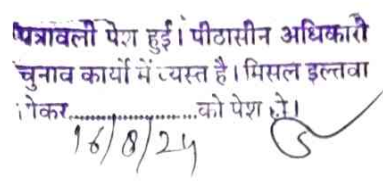 पत्रावली पेश हुई। पीठासीन अधिकारी
चुनाव कार्यो में व्यस्त है। मिसल इल्तवा
होकर....................को पेश हो।
16/8/24